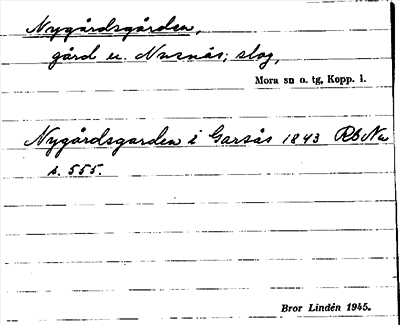 Nygårdsgården,
gård u. Nusnäs; slog,
Mora sn o. tg, Kopp. l.
Nygårdsgarden i Garsås 1843 Rb Nu
s. 555.
Bror Lindén 1945.